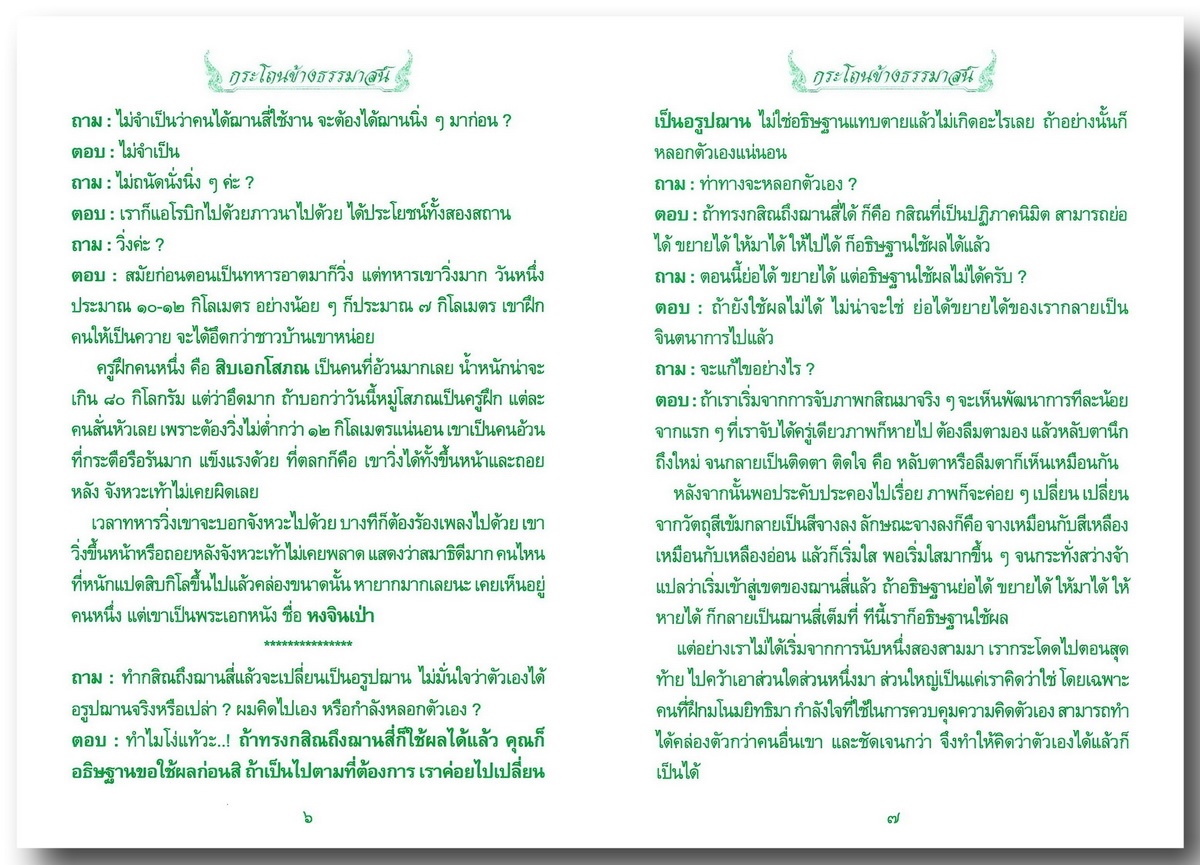 กระโถนข้างธรรมาสน์
ถาม : ไม่จำเป็นว่าคนได้ฌานสี่ใช้งาน จะต้องได้ฌานนิ่ง ๆ มาก่อน ?
ตอบ : ไม่จำเป็น
ถาม : ไม่ถนัดนั่งนิ่ง ๆ ค่ะ ?
ตอบ : เราก็แอโรบิกไปด้วยภาวนาไปด้วย ได้ประโยชน์ทั้งสองสถาน
ถาม : วิ่งค่ะ ?
ตอบ : สมัยก่อนตอนเป็นทหารอาตมาก็วิ่ง แต่ทหารเขาวิ่งมาก วันหนึ่ง
ประมาณ ๑๐-๑๒ กิโลเมตร อย่างน้อย ๆ ก็ประมาณ ๗ กิโลเมตร เขาฝึก
คนให้เป็นควาย จะได้อึดกว่าชาวบ้านเขาหน่อย
ครูฝึกคนหนึ่ง คือ สิบเอกโสภณ เป็นคนที่อ้วนมากเลย น้ำหนักน่าจะ
เกิน ๘๐ กิโลกรัม แต่ว่าอึดมาก ถ้าบอกว่าวันนี้หมู่โสภณเป็นครูฝึก แต่ละ
คนสั่นหัวเลย เพราะต้องวิ่งไม่ต่ำกว่า ๑๒ กิโลเมตรแน่นอน เขาเป็นคนอ้วน
ที่กระตือรือร้นมาก แข็งแรงด้วย ที่ตลกก็คือ เขาวิ่งได้ทั้งขึ้นหน้าและถอย
หลัง จังหวะเท้าไม่เคยผิดเลย
เวลาทหารวิ่งเขาจะบอกจังหวะไปด้วย บางทีก็ต้องร้องเพลงไปด้วย เขา
วิ่งขึ้นหน้าหรือถอยหลังจังหวะเท้าไม่เคยพลาด แสดงว่าสมาธิดีมาก คนไหน
ที่หนักแปดสิบกิโลขึ้นไปแล้วคล่องขนาดนั้น หายากมากเลยนะ เคยเห็นอยู่
คนหนึ่ง แต่เขาเป็นพระเอกหนัง ชื่อ หงจินเป่า
***************
ถาม : ทำกสิณถึงฌานสี่แล้วจะเปลี่ยนเป็นอรูปฌาน ไม่มั่นใจว่าตัวเองได้
อรูปฌานจริงหรือเปล่า ? ผมคิดไปเอง หรือกำลังหลอกตัวเอง ?
ตอบ : ทำไมโง่แท้วะ..! ถ้าทรงกสิณถึงฌานสี่ก็ใช้ผลได้แล้ว คุณก็
อธิษฐานขอใช้ผลก่อนสิ ถ้าเป็นไปตามที่ต้องการ เราค่อยไปเปลี่ยน
๖
กระโถนข้างธรรมาสน์
เป็นอรูปฌาน ไม่ใช่อธิษฐานแทบตายแล้วไม่เกิดอะไรเลย ถ้าอย่างนั้นก็
หลอกตัวเองแน่นอน
ถาม : ท่าทางจะหลอกตัวเอง ?
ตอบ : ถ้าทรงกสิณถึงฌานสี่ได้ ก็คือ กสิณที่เป็นปฏิภาคนิมิต สามารถย่อ
ได้ ขยายได้ ให้มาได้ ให้ไปได้ ก็อธิษฐานใช้ผลได้แล้ว
ถาม : ตอนนี้ย่อได้ ขยายได้ แต่อธิษฐานใช้ผลไม่ได้ครับ ?
ตอบ : ถ้ายังใช้ผลไม่ได้ ไม่น่าจะใช่ ย่อได้ขยายได้ของเรากลายเป็น
จินตนาการไปแล้ว
ถาม : จะแก้ไขอย่างไร ?
ตอบ : ถ้าเราเริ่มจากการจับภาพกสิณมาจริง ๆ จะเห็นพัฒนาการทีละน้อย
จากแรก ๆ ที่เราจับได้ครู่เดียวภาพก็หายไป ต้องลืมตามอง แล้วหลับตานึก
ถึงใหม่ จนกลายเป็นติดตา ติดใจ คือ หลับตาหรือลืมตาก็เห็นเหมือนกัน
หลังจากนั้นพอประคับประคองไปเรื่อย ภาพก็จะค่อย ๆ เปลี่ยน เปลี่ยน
จากวัตถุสีเข้มกลายเป็นสีจางลง ลักษณะจางลงก็คือ จางเหมือนกับสีเหลือง
เหมือนกับเหลืองอ่อน แล้วก็เริ่มใส พอเริ่มใสมากขึ้น ๆ จนกระทั่งสว่างจ้า
แปลว่าเริ่มเข้าสู่เขตของฌานสี่แล้ว ถ้าอธิษฐานย่อได้ ขยายได้ ให้มาได้ ให้
หายได้ ก็กลายเป็นฌานสี่เต็มที่ ทีนี้เราก็อธิษฐานใช้ผล
แต่อย่างเราไม่ได้เริ่มจากการนับหนึ่งสองสามมา เรากระโดดไปตอนสุด
ท้าย ไปคว้าเอาส่วนใดส่วนหนึ่งมา ส่วนใหญ่เป็นแค่เราคิดว่าใช่ โดยเฉพาะ
คนที่ฝึกมโนมยิทธิมา กำลังใจที่ใช้ในการควบคุมความคิดตัวเอง สามารถทำ
ได้คล่องตัวกว่าคนอื่นเขา และชัดเจนกว่า จึงทำให้คิดว่าตัวเองได้แล้วก็
เป็นได้
๗